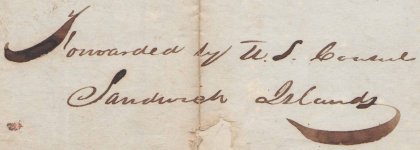 Forwarded by U. S. Consul
Sandwich Islands